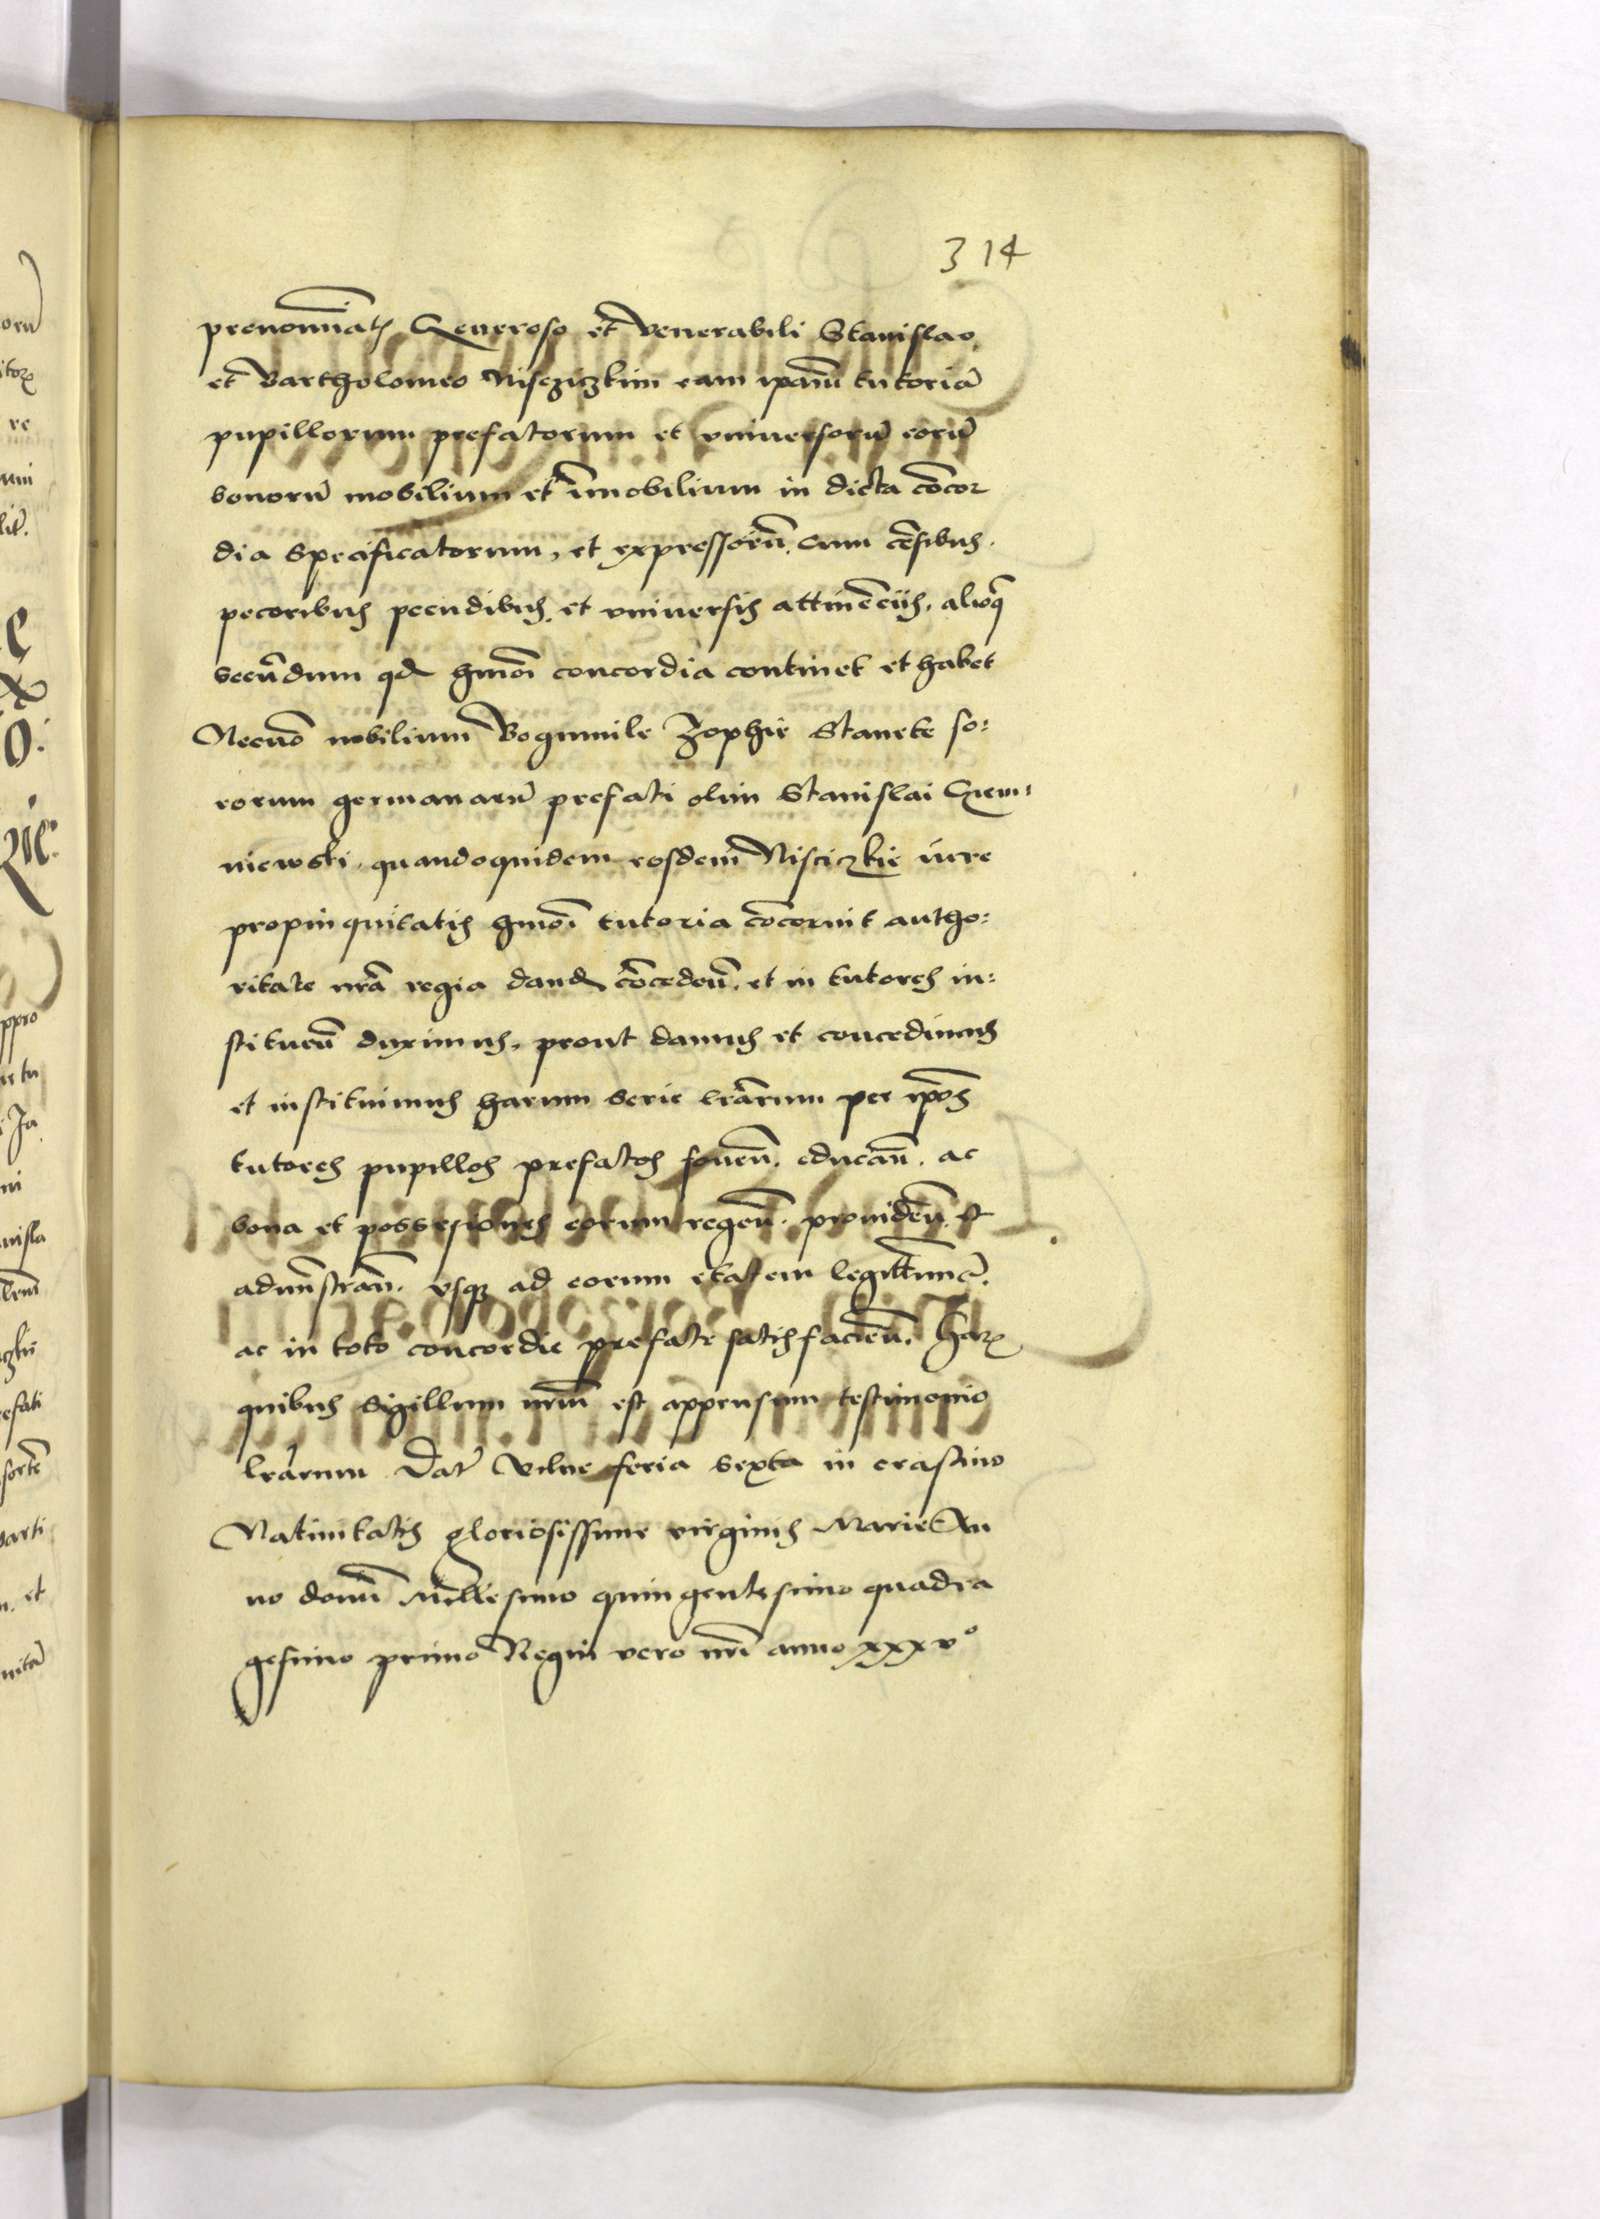 314
prenominatꝭ Generoso et venerabili Stanislao
et Bartholomeo Niscziczkim eam ipam̄ tutoriā
pupillorum prefatorum et vniuersorū eorū
bonorū mobilium et īmobilium in dicta cōcor
dia specificatorum, et expressorū, cum cēsibus.
pecoribus pecudibus, et vniuersis attinēciis,
secūdum qd hmōi concordia continet et habet
Necnō nobilium Bogumile Zophie Stanete so:
rorum germanarū prefati olim Stanislai
niewski, quandoquidem eosdem Nisciczkie iure
propinquitatis hmōi tutoria cōcernit autho:
ritate nrā regia dand cōcedeñ. et in tutores in:
stitueñ duximus, prout damus et concedimus
et instituimus harum serie lrārum per ipōs
tutores pupillos prefatos foueñ, educañ, ac
bona et possesiones eorum regeñ. prouideñ. et
admīstrañ. vsqꝫ ad eorum etatem legittimā.
ac in toto concordie prefate satisfacieñ. Harꝝ
quibus sigillum nrm̄ est appensum testimonio
lrārum Dat̄ Vilne feria sexta in crastino
Natiuitatis gloriosissime virginis Marie An
no domī Millesimo quingentesimo quadra
gesimo primo Regni vero nrī anno xxxvº